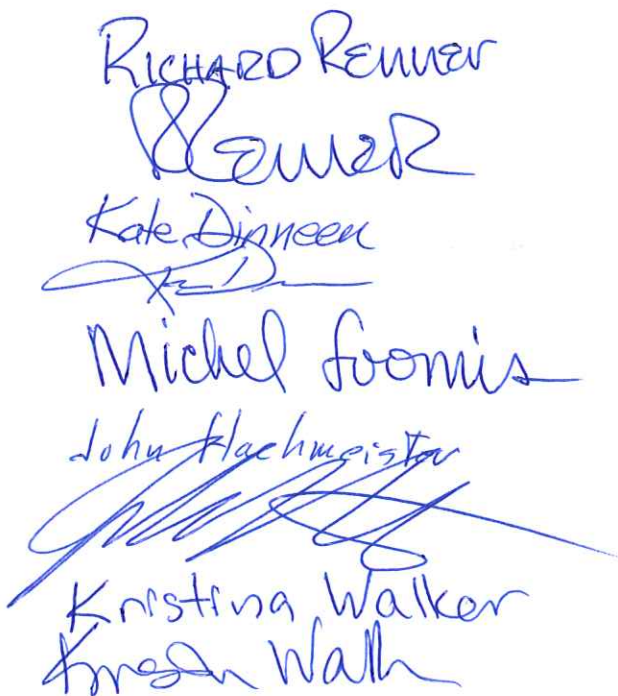 Richard Renner
Renner
Kate Dinneen
Michel Loomis
John Hachmeister
Kristina Walker